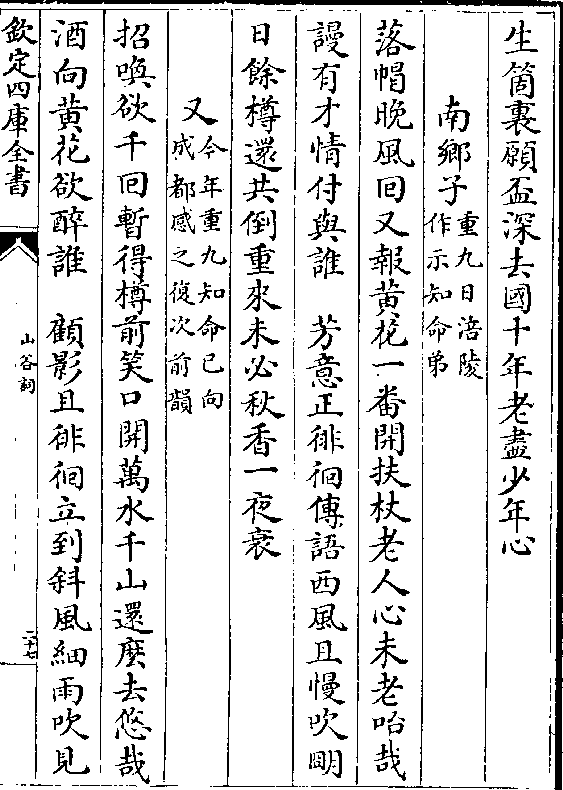 生箇裏願盃深去國十年老盡少年心
南鄉子重九日涪陵
作示知命弟
落帽晚風回又報黃花一番開扶杖老人心未老咍哉
謾有才情付與誰　芳意正徘徊傳語西風且慢吹明
日餘樽還共倒重來未必秋香一夜衰
又今年重九知命已向
成都感之復次前韻
招喚欲千回暫得樽前笑口開萬水千山還麽去悠哉
酒向黃花欲醉誰　顧影且徘徊立到斜風細雨吹見
欽定四庫全書
山谷詞
二十七